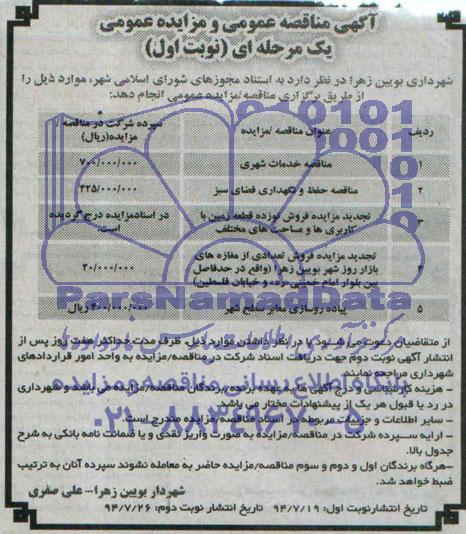 آگهی مناقصه عمومی و مزایده عمومی
یک مرحله ای (نوبت اول)
شهرداری بویین زهرا در نظر دارد به استناد مجوزهای شورای اسلامی شهر، موارد ذیل را
از طریق برگزاری مناقصه/مزایده عمومی انجام دهد:
ردیف عنوان مناقصه /مزایده سپرده شرکت در مناقصه / مزایده(ریال)
۱ مناقصه خدمات شهری ۷۰۰/۰۰۰/۰۰۰
۲ مناقصه حفظ و نگهداری فضای سبز ۲۲۵/۰۰۰/۰۰۰
۳ تجدید مزایده فروش نوزده قطعه زمین با کاربری ها و مساحت های مختلف در اسنادمزایده درج گردیده است.
۴ تجدید مزایده فروش تعدادی از مغازه های بازار روز شهر بویین زهرا (واقع در حدفاصل بین بلوار امام خمینی «ره» و خیابان فلسطین) ۲۰/۰۰۰/۰۰۰
۵ پیاده روسازی معابر سطح شهر ۲۰۰/۰۰۰/۰۰۰ ریال
ParsNamadData
از متقاضیان دعوت می شود با در نظر داشتن موارد ذیل، ظرف مدت حداکثر هفت روز پس از
انتشار آگهی نوبت دوم جهت دریافت اسناد شرکت در مناقصه/مزایده به واحد امور قراردادهای
شهرداری مراجعه نمایند.
- هزینه کارشناسی و درج آگهی ها به عهده برنده/برندگان مناقصه/مزایده می باشد و شهرداری
در رد یا قبول هر یک از پیشنهادات مختار می باشد.
پایگاه اطلاع رسانی مناقصه و مزایده
- سایر اطلاعات و جزییات مربوطه در اسناد مناقصه/مزایده مندرج است.
۰۲۱-۸۸۳۴۹۶۷۰-۵
- ارایه سپرده شرکت در مناقصه/مزایده به صورت واریز نقدی و یا ضمانت نامه بانکی به شرح
جدول بالا.
-هرگاه برندگان اول و دوم و سوم مناقصه/مزایده حاضر به معامله نشوند سپرده آنان به ترتیب
ضبط خواهد شد.
شهردار بویین زهرا... علی صفری
تاریخ انتشارنوبت اول: ۹۴/۷/۱۹ تاریخ انتشارنوبت دوم: ۹۴/۷/۲۶